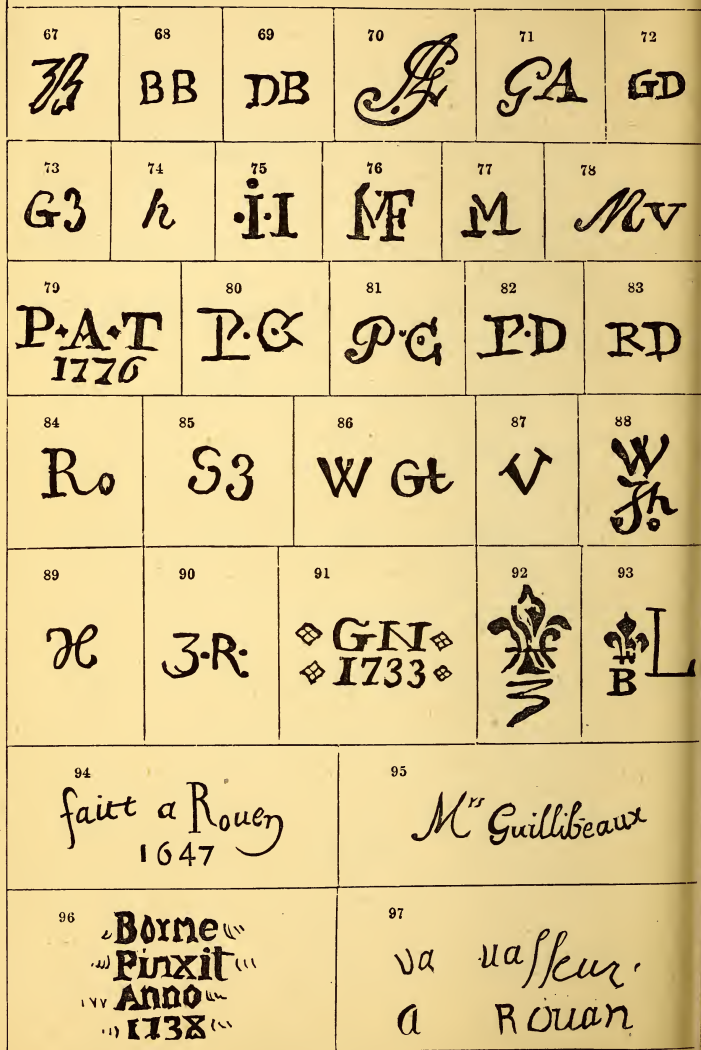 67
68
BB
69
DB
70
71
GA
72
GD
73
G3
74
h
75
·I·I
76
MF
77
M
78
Mv
79
P·A·T
1776
80
P·C
81
P·G
82
P·D
83
RD
84
Ro
85
S3
86
W Gt
87
V
88
W
89
90
3·R·
91
GN
1733
92
93
B L
94
faitt a Rouen
1647
95
Mrs Guillibeaux
96
Borne
Pinxit
Anno
1738
97
va uasseur.
a Rouan